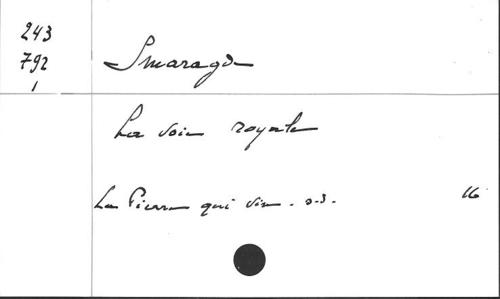 243
792
1
Smaragde
La voie royale
La Pierre qui vire. s.d.
16